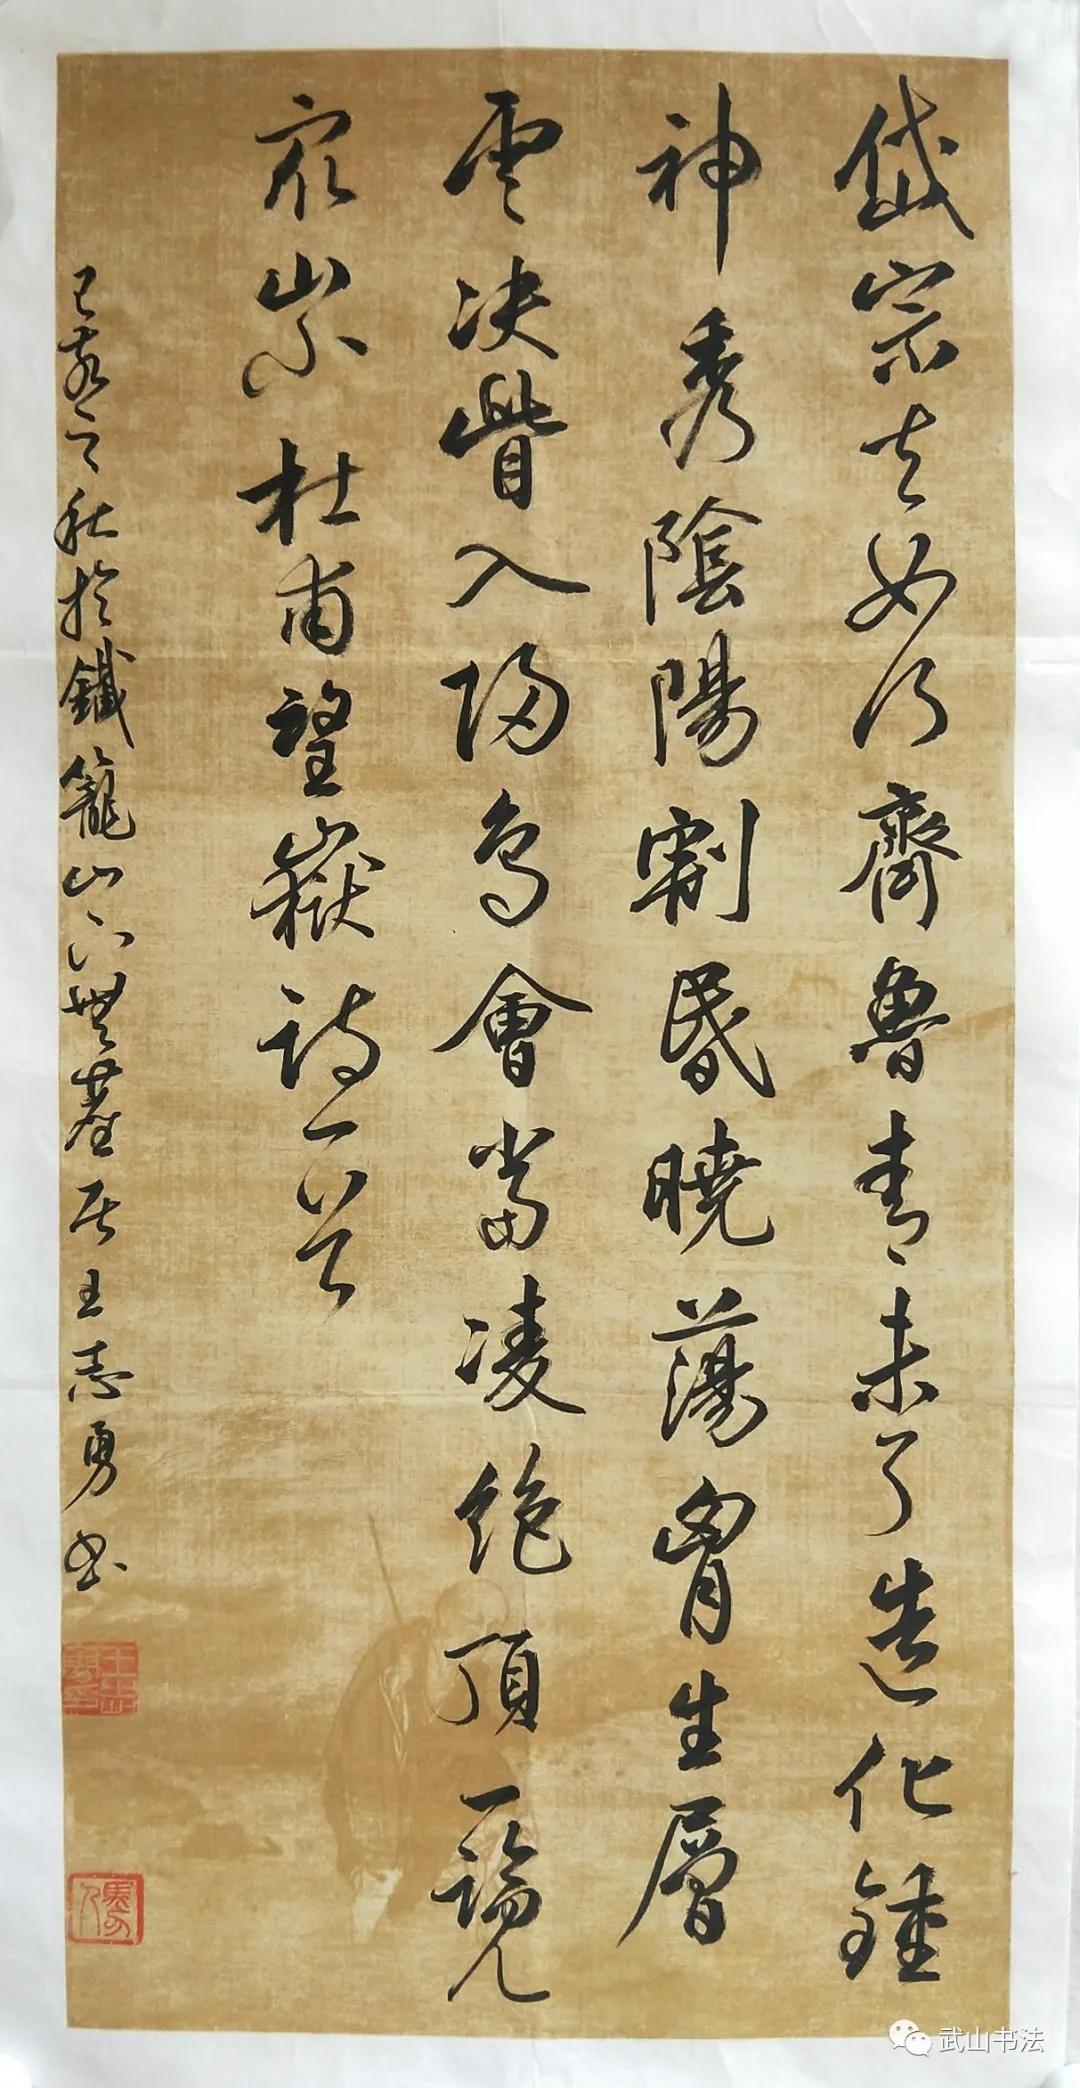 岱宗夫如何齊魯青未了造化鍾
神秀陰陽割昏曉蕩胷生層
雲决眥入歸鳥會當凌絕頂一覽
眾山小杜甫望嶽詩一首
己亥之秋於鐵籠山下無塵居王志勇書
王志勇印
武山书法